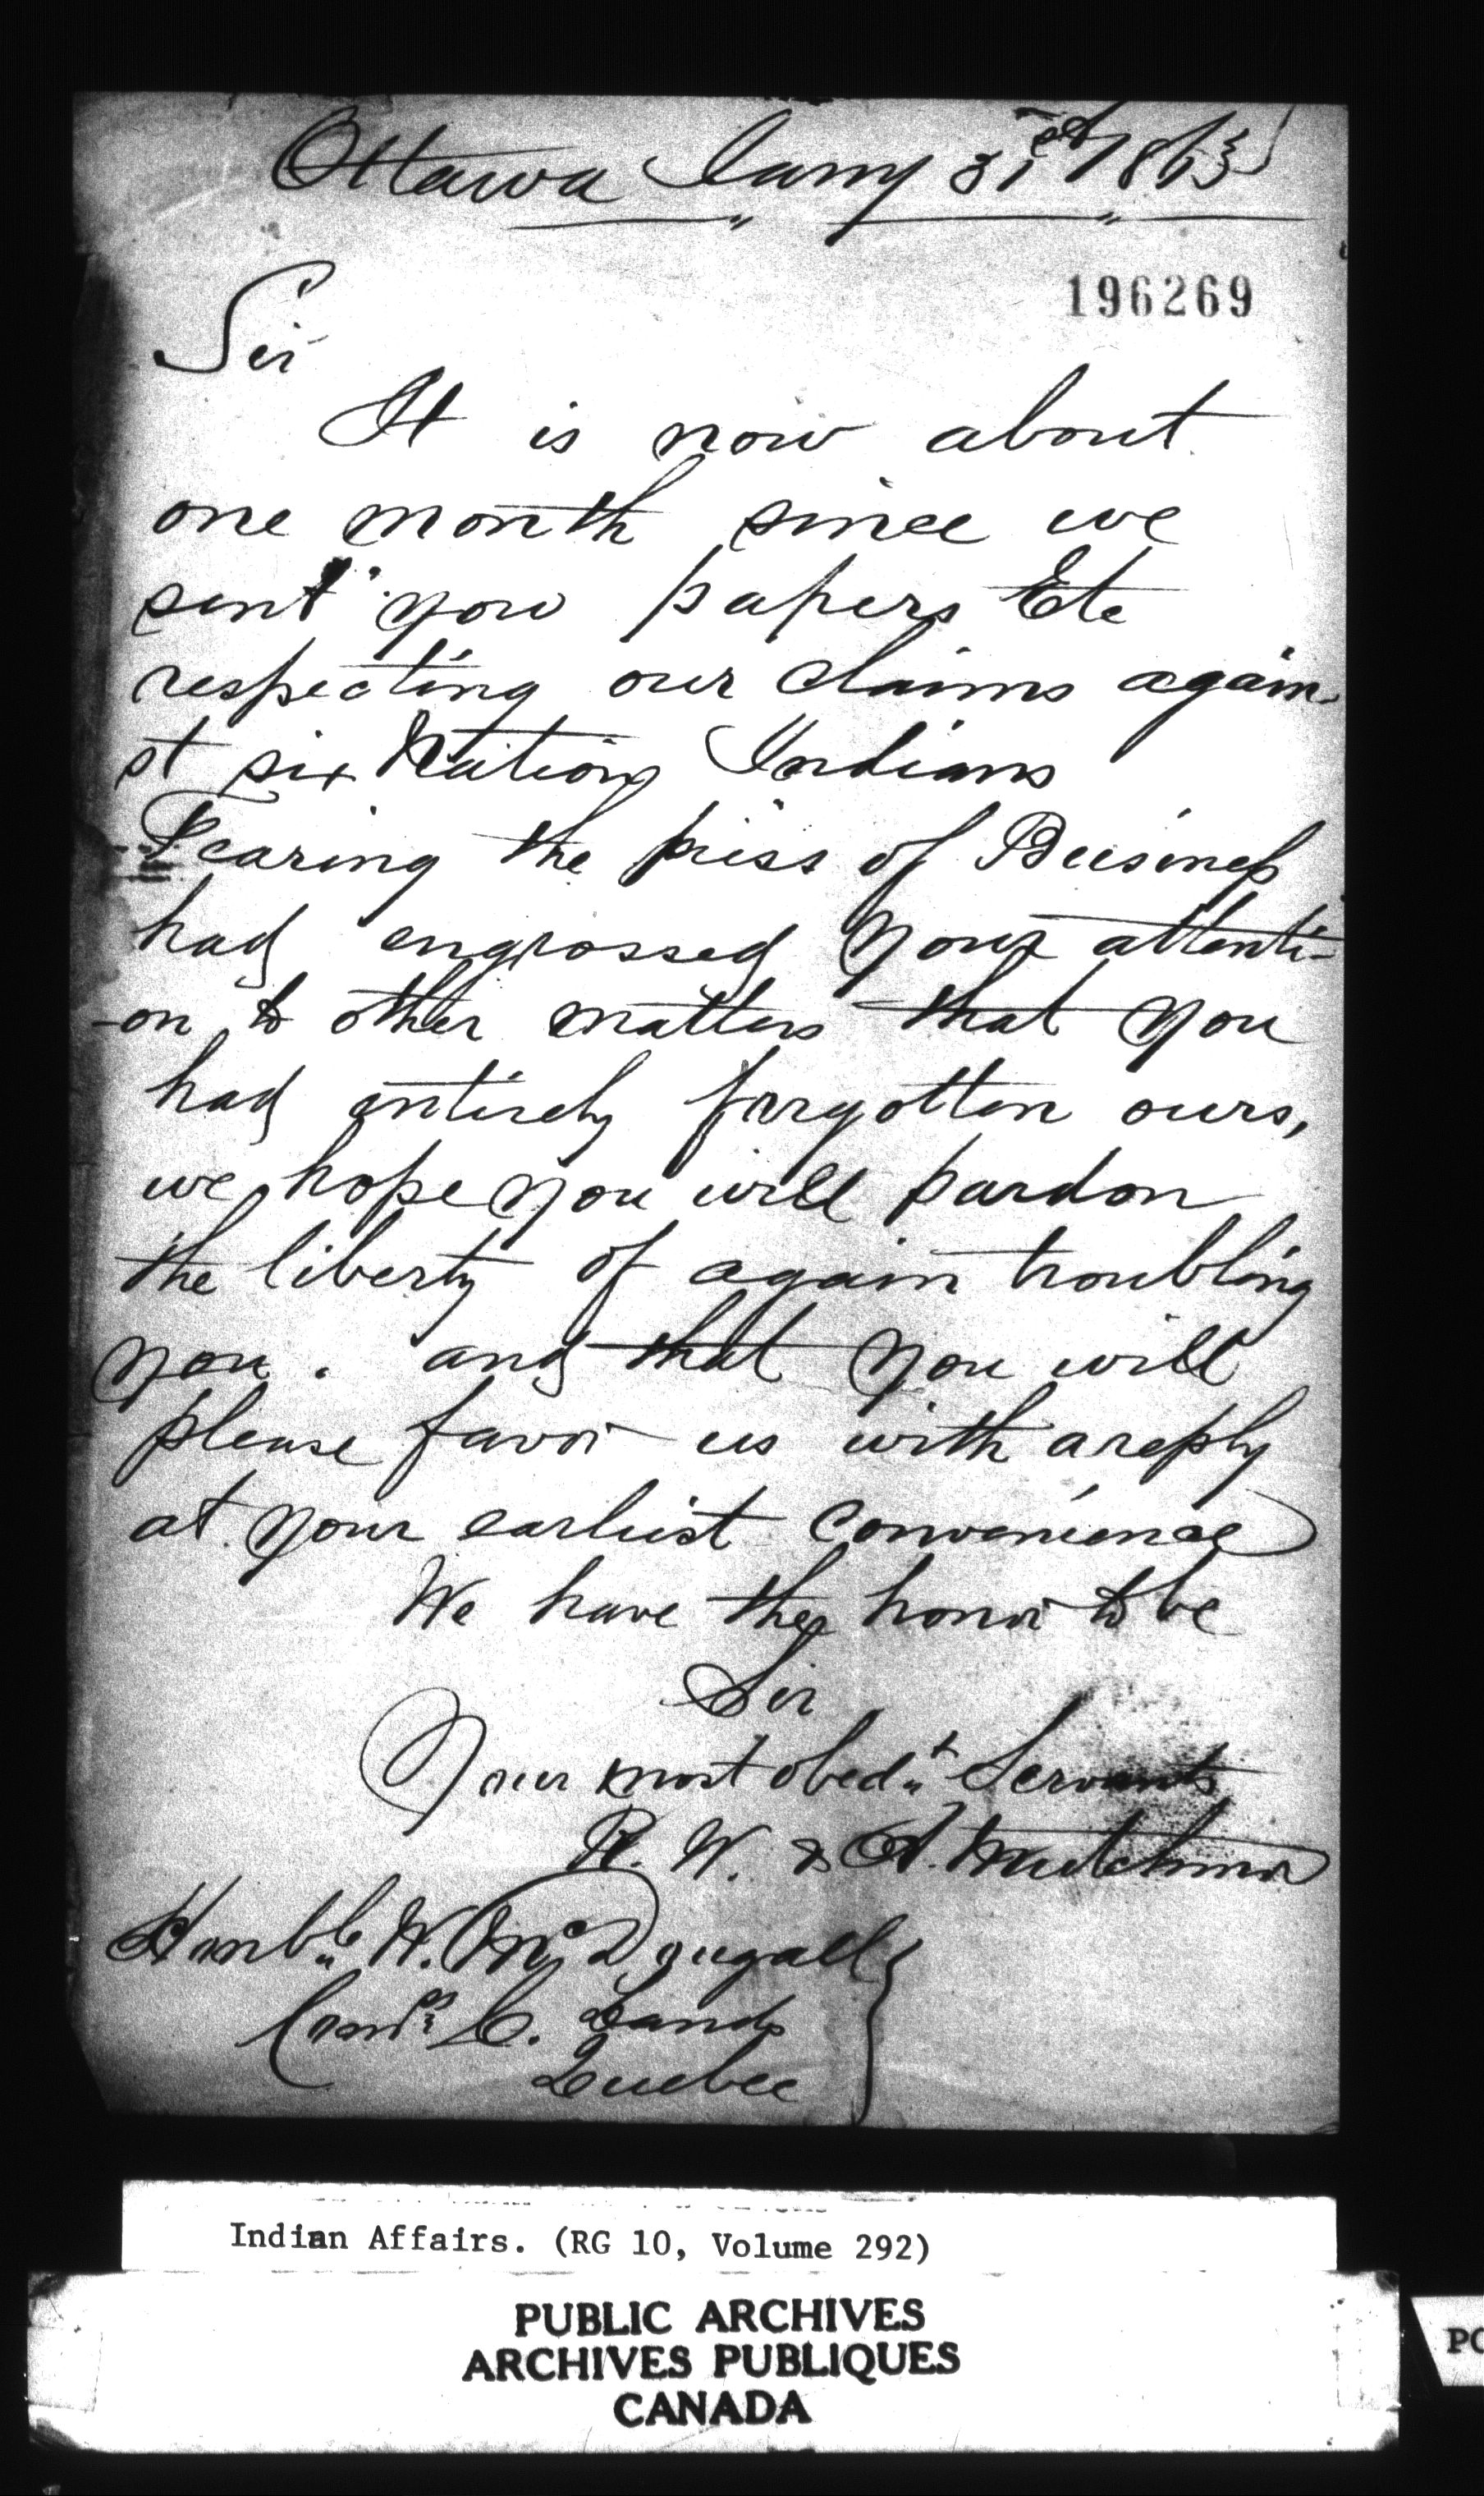 Ottawa Jany 31st 1863
196269
Sir
It is now about
one month since we
sent you papers Etc
respecting our claims again-
st six Nations Indians
Fearing the press of Business
had engrossed your attenti-
-on to other matters that you
had entirely forgotten ours,
we hope you will pardon
the liberty of again troubling
you. and that you will
please favor us with a reply
at your earliest convenience
We have the honor to be
Sir
Your most obedt Servants
R. W. & A. Mutchmor
Honble W. McDougall
Comr C. Lands
Quebec
Indian Affairs. (RG 10, Volume 292)
PUBLIC ARCHIVES
ARCHIVES PUBLIQUES
CANADA